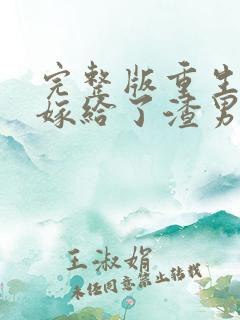 完整版重生
嫁给了渣男
王淑娟
未经同意禁止转载